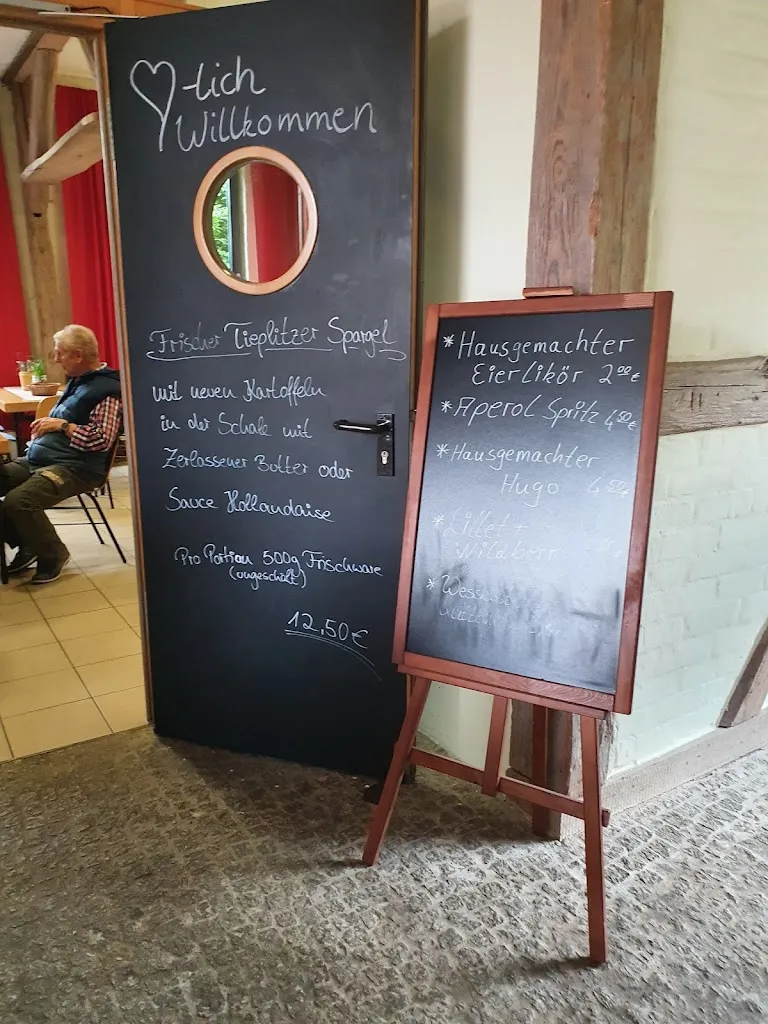 ♡-lich
Willkommen
Frischer Tieplitzer Spargel
mit neuen Kartoffeln
in der Schale mit
Zerlassener Butter oder
Sauce Hollandaise
Pro Portion 500g Frischware
(ungeschält)
12,50€
*Hausgemachter
Eierlikör 2,00€
*Aperol Spritz 4,50€
*Hausgemachter
Hugo 4,50€
*Lillet +
Wildberr
*